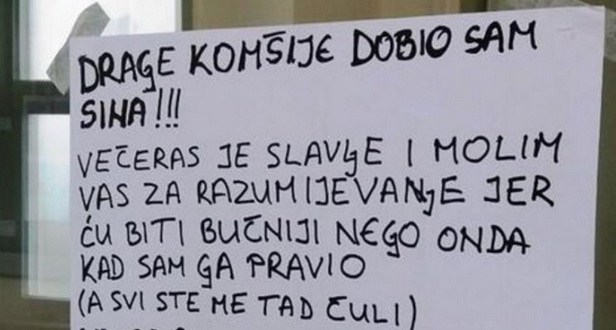 DRAGE KOMŠIJE DOBIO SAM
SINA!!!
VEČERAS JE SLAVJE I MOLIM
VAS ZA RAZUMIJEVANJE JER
ĆU BITI BUČNIJI NEGO ONDA
KAD SAM GA PRAVIO
(A SVI STE ME TAD ČULI)